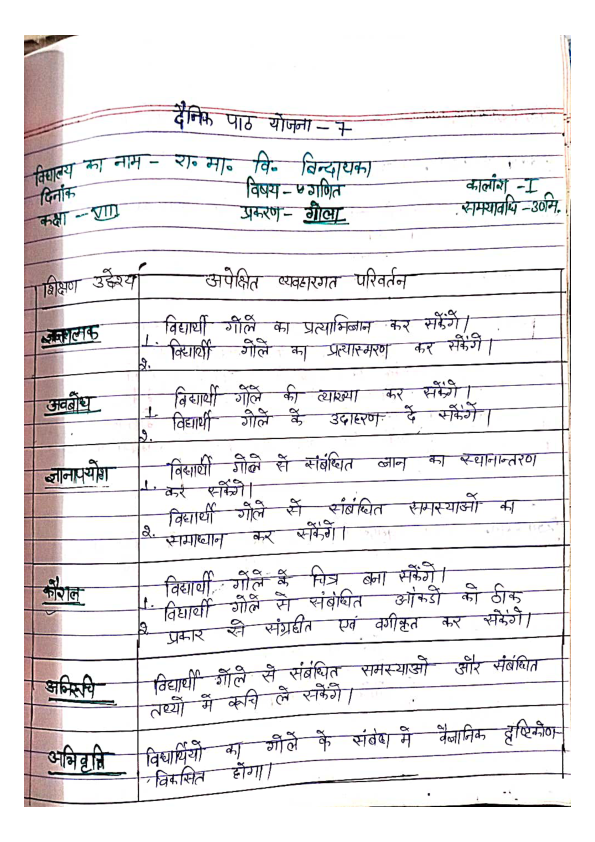 दैनिक पाठ योजना - 7
विद्यालय का नाम - रा० मा० वि० विन्दायका
दिनांक विषय - गणित कालांश - I
कक्षा - VIII प्रकरण - गोला समयावधि - 30मि.
शिक्षण उद्देश्य अपेक्षित व्यवहारगत परिवर्तन
ज्ञानात्मक 1. विद्यार्थी गोले का प्रत्याभिज्ञान कर सकेंगे।
2. विद्यार्थी गोले का प्रत्यास्मरण कर सकेंगे।
अवबोध 1. विद्यार्थी गोले की व्याख्या कर सकेंगे।
2. विद्यार्थी गोले के उदाहरण दे सकेंगे।
ज्ञानापयोग 1. विद्यार्थी गोले से संबंधित ज्ञान का स्थानान्तरण
कर सकेंगे।
2. विद्यार्थी गोले से संबंधित समस्याओं का
समाधान कर सकेंगे।
कौशल 1. विद्यार्थी गोले के चित्र बना सकेंगे।
2 विद्यार्थी गोले से संबंधित आंकडो को ठीक
प्रकार से संग्रहीत एवं वर्गीकृत कर सकेंगे।
अभिरूचि विद्यार्थी गोले से संबंधित समस्याओं और संबंधित
तथ्यो में रूचि ले सकेंगे।
अभिवृत्ति विद्यार्थियो का गोले के संबंध में वैज्ञानिक दृष्टिकोण
विकसित होगा।